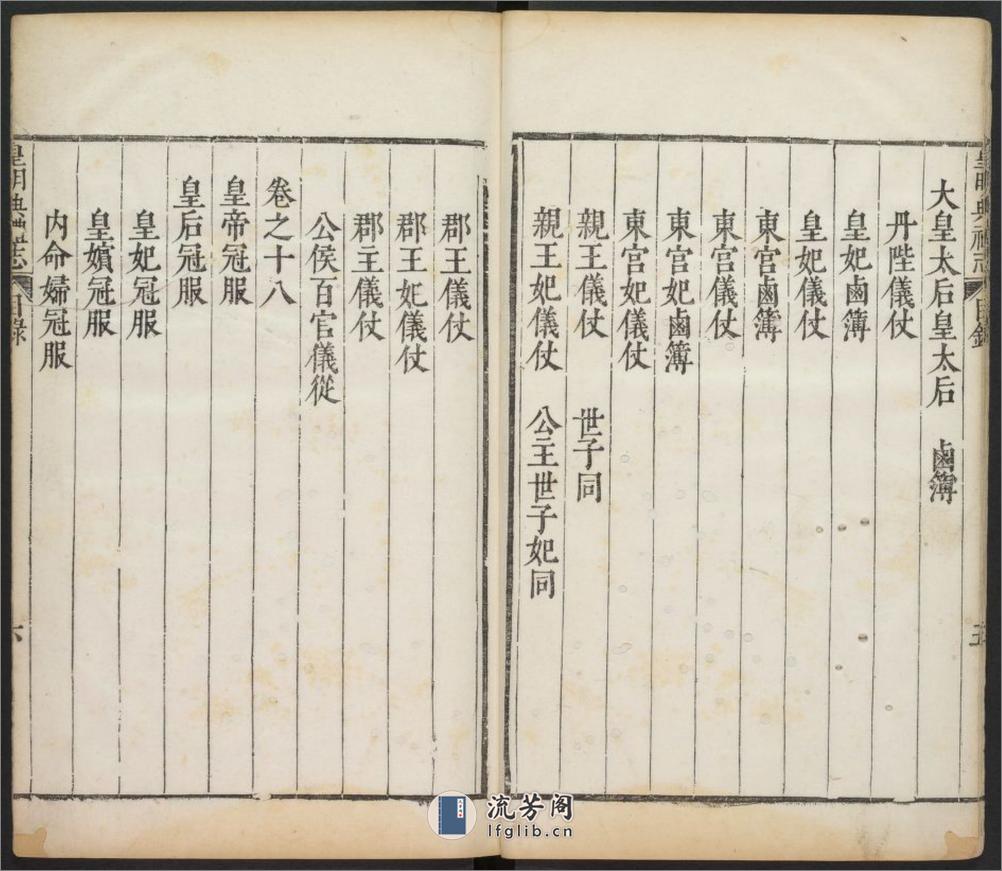 皇明典禮志 目錄 五
大皇太后皇太后 鹵簿
丹陛儀仗
皇妃鹵簿
皇妃儀仗
東宮鹵簿
東宮儀仗
東宮妃鹵簿
東宮妃儀仗
親王儀仗 世子同
親王妃儀仗 公主世子妃同
郡王儀仗
郡王妃儀仗
郡主儀仗
公侯百官儀從
卷之十八
皇帝冠服
皇后冠服
皇妃冠服
皇嬪冠服
内命婦冠服
皇明典禮志 目錄 六
流芳阁
lfglib.cn